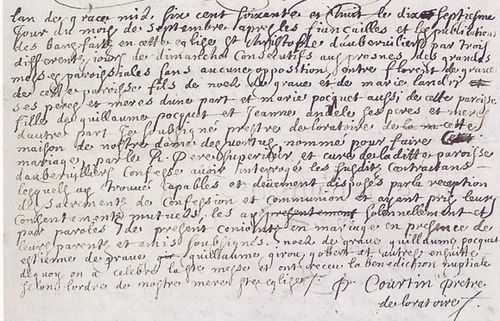 lan de grace mil six cent soixante et huit le dixseptiesme
jour du mois de septembre apres les fiancailles et les publications
des bans faite en cette eglise St christofle daubervilliers par trois
differents jours de dimanche consecutifs aux prosnes des grandes
messes paroissiales sans aucune opposition entre florent de graue
de cette paroisse fils de noel de graue et de marie landri
ses peres et meres dune part et marie pocquet aussi de cette paroisse
fille de guillaume pocquet et Jeanne andele ses peres et meres
dautre part Je soubsigné prestre de loratoire de la cette
maison de nostre dame des vertus nommé pour faire
mariage par le R. Pere superieur et curé de la ditte paroisse
daubervilliers confesse avoir interrogé les susdits contractans
lesquels ay trouvé capables et deuement disposés par la reception
des sacrements de confession et communion et ayant pris leurs
consentements mutuels les ay presentement solennellement et
par paroles de present conjoints en mariage en presence de
leurs parents et amis soubsignés noel de graue guillaume pocquet
estienne de graue guillaume girou gobert et autres ensuitte
dequoy on a celebré la ste messe et ont receu la benediction nuptiale
selon lordre de nostre mere ste eglise
P Courtin pretre
de loratoire